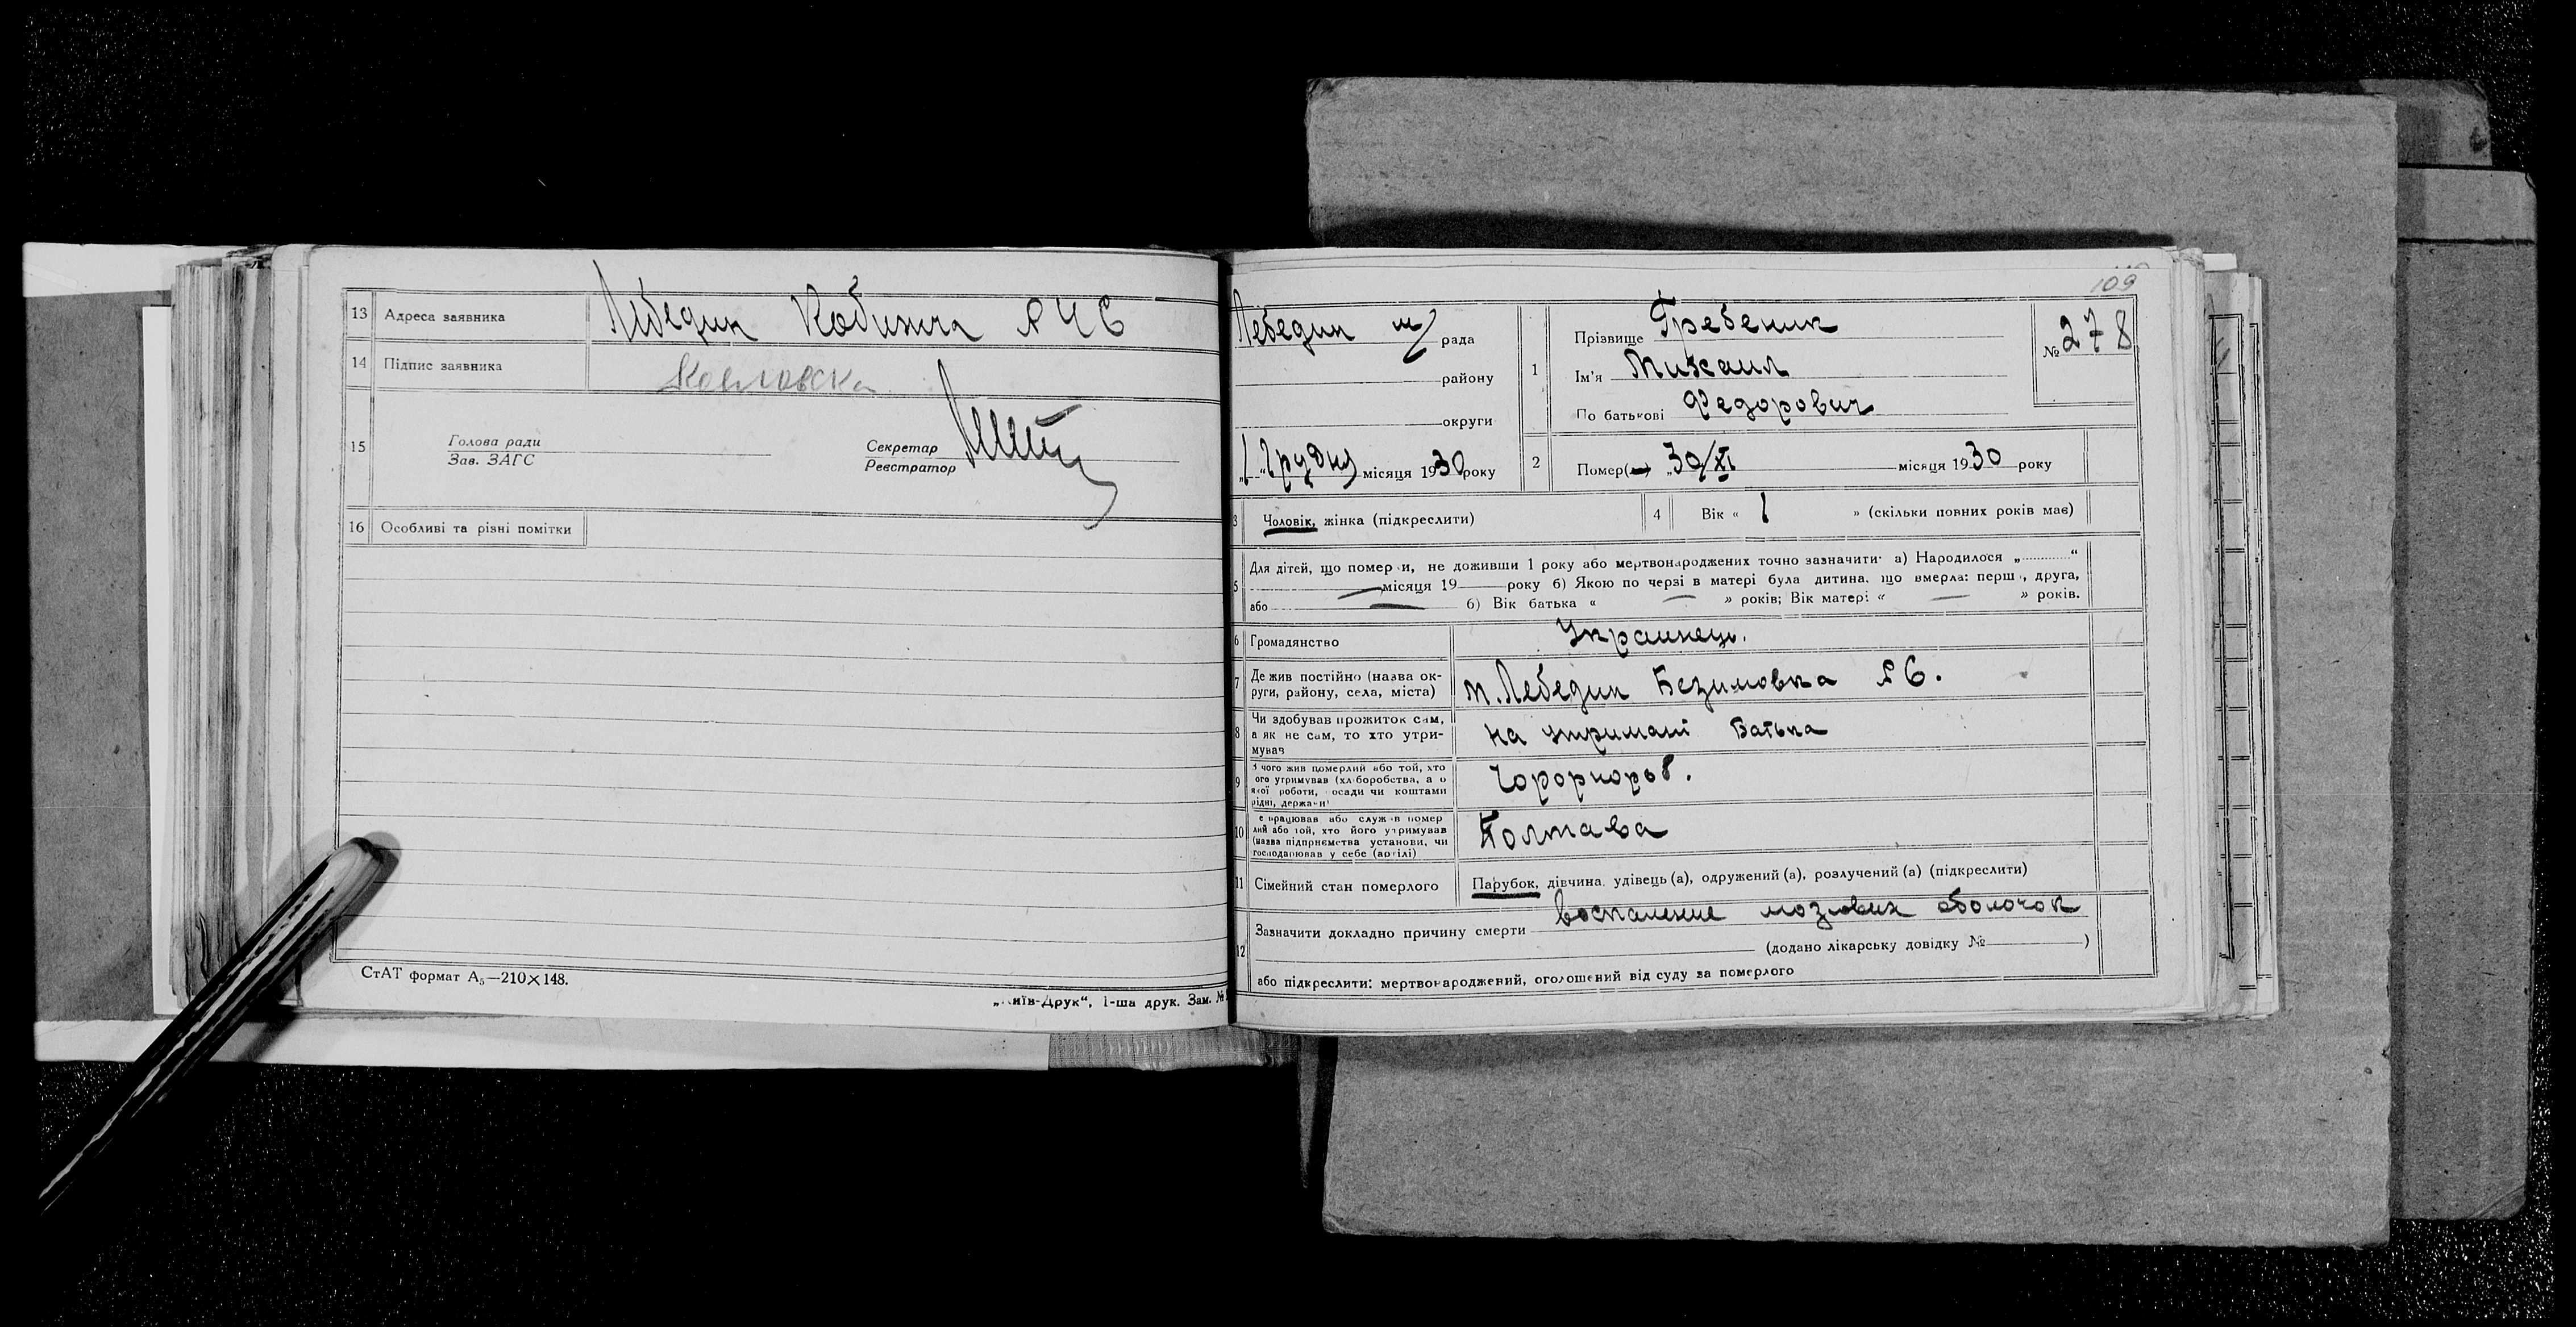 13 Адреса заявника Лебедин Кобижча № 46
14 Підпис заявника
15 Голова ради
Зав. ЗАГС
Секретар
Реєстратор
16 Особливі та різні помітки
СтАТ формат А₅—210×148.
„Київ-Друк“, 1-ша друк. Зам. №
109
Лебедин м/ рада
району
округи
„1“ Грудня місяця 1930 року
1 Прізвище Гребеник
Ім'я Михаил
По батькові Федорович
№ 278
2 Помер(ла) „30/XI місяця 1930 року
3 Чоловік, жінка (підкреслити)
4 Вік « 1 » (скільки повних років має)
5 Для дітей, що померли, не доживши 1 року або мертвонароджених точно зазначити: а) Народилося „ “
місяця 19 року б) Якою по черзі в матері була дитина, що вмерла: перша, друга,
або б) Вік батька « — » років; Вік матері « — » років.
6 Громадянство Украинець.
7 Де жив постійно (назва ок-
руги, району, села, міста) м. Лебедин Безимовка № 6.
8 Чи здобував прожиток сам,
а як не сам, то хто утри-
мував на утримані Батька
9 З чого жив померлий або той, хто
його утримував (хліборобства, а о
якої роботи, посади чи коштами
рідні, держави)
10 Де працював або служив помер
лий або той, хто його утримував
(назва підприємства установи, чи
господарював у себе (артілі) Полтава
11 Сімейний стан померлого Парубок, дівчина, удівець (а), одружений (а), розлучений (а) (підкреслити)
12 Зазначити докладно причину смерти воспаление мозговых оболочок
(додано лікарську довідку № )
або підкреслити: мертвонароджений, оголошений від суду за померлого